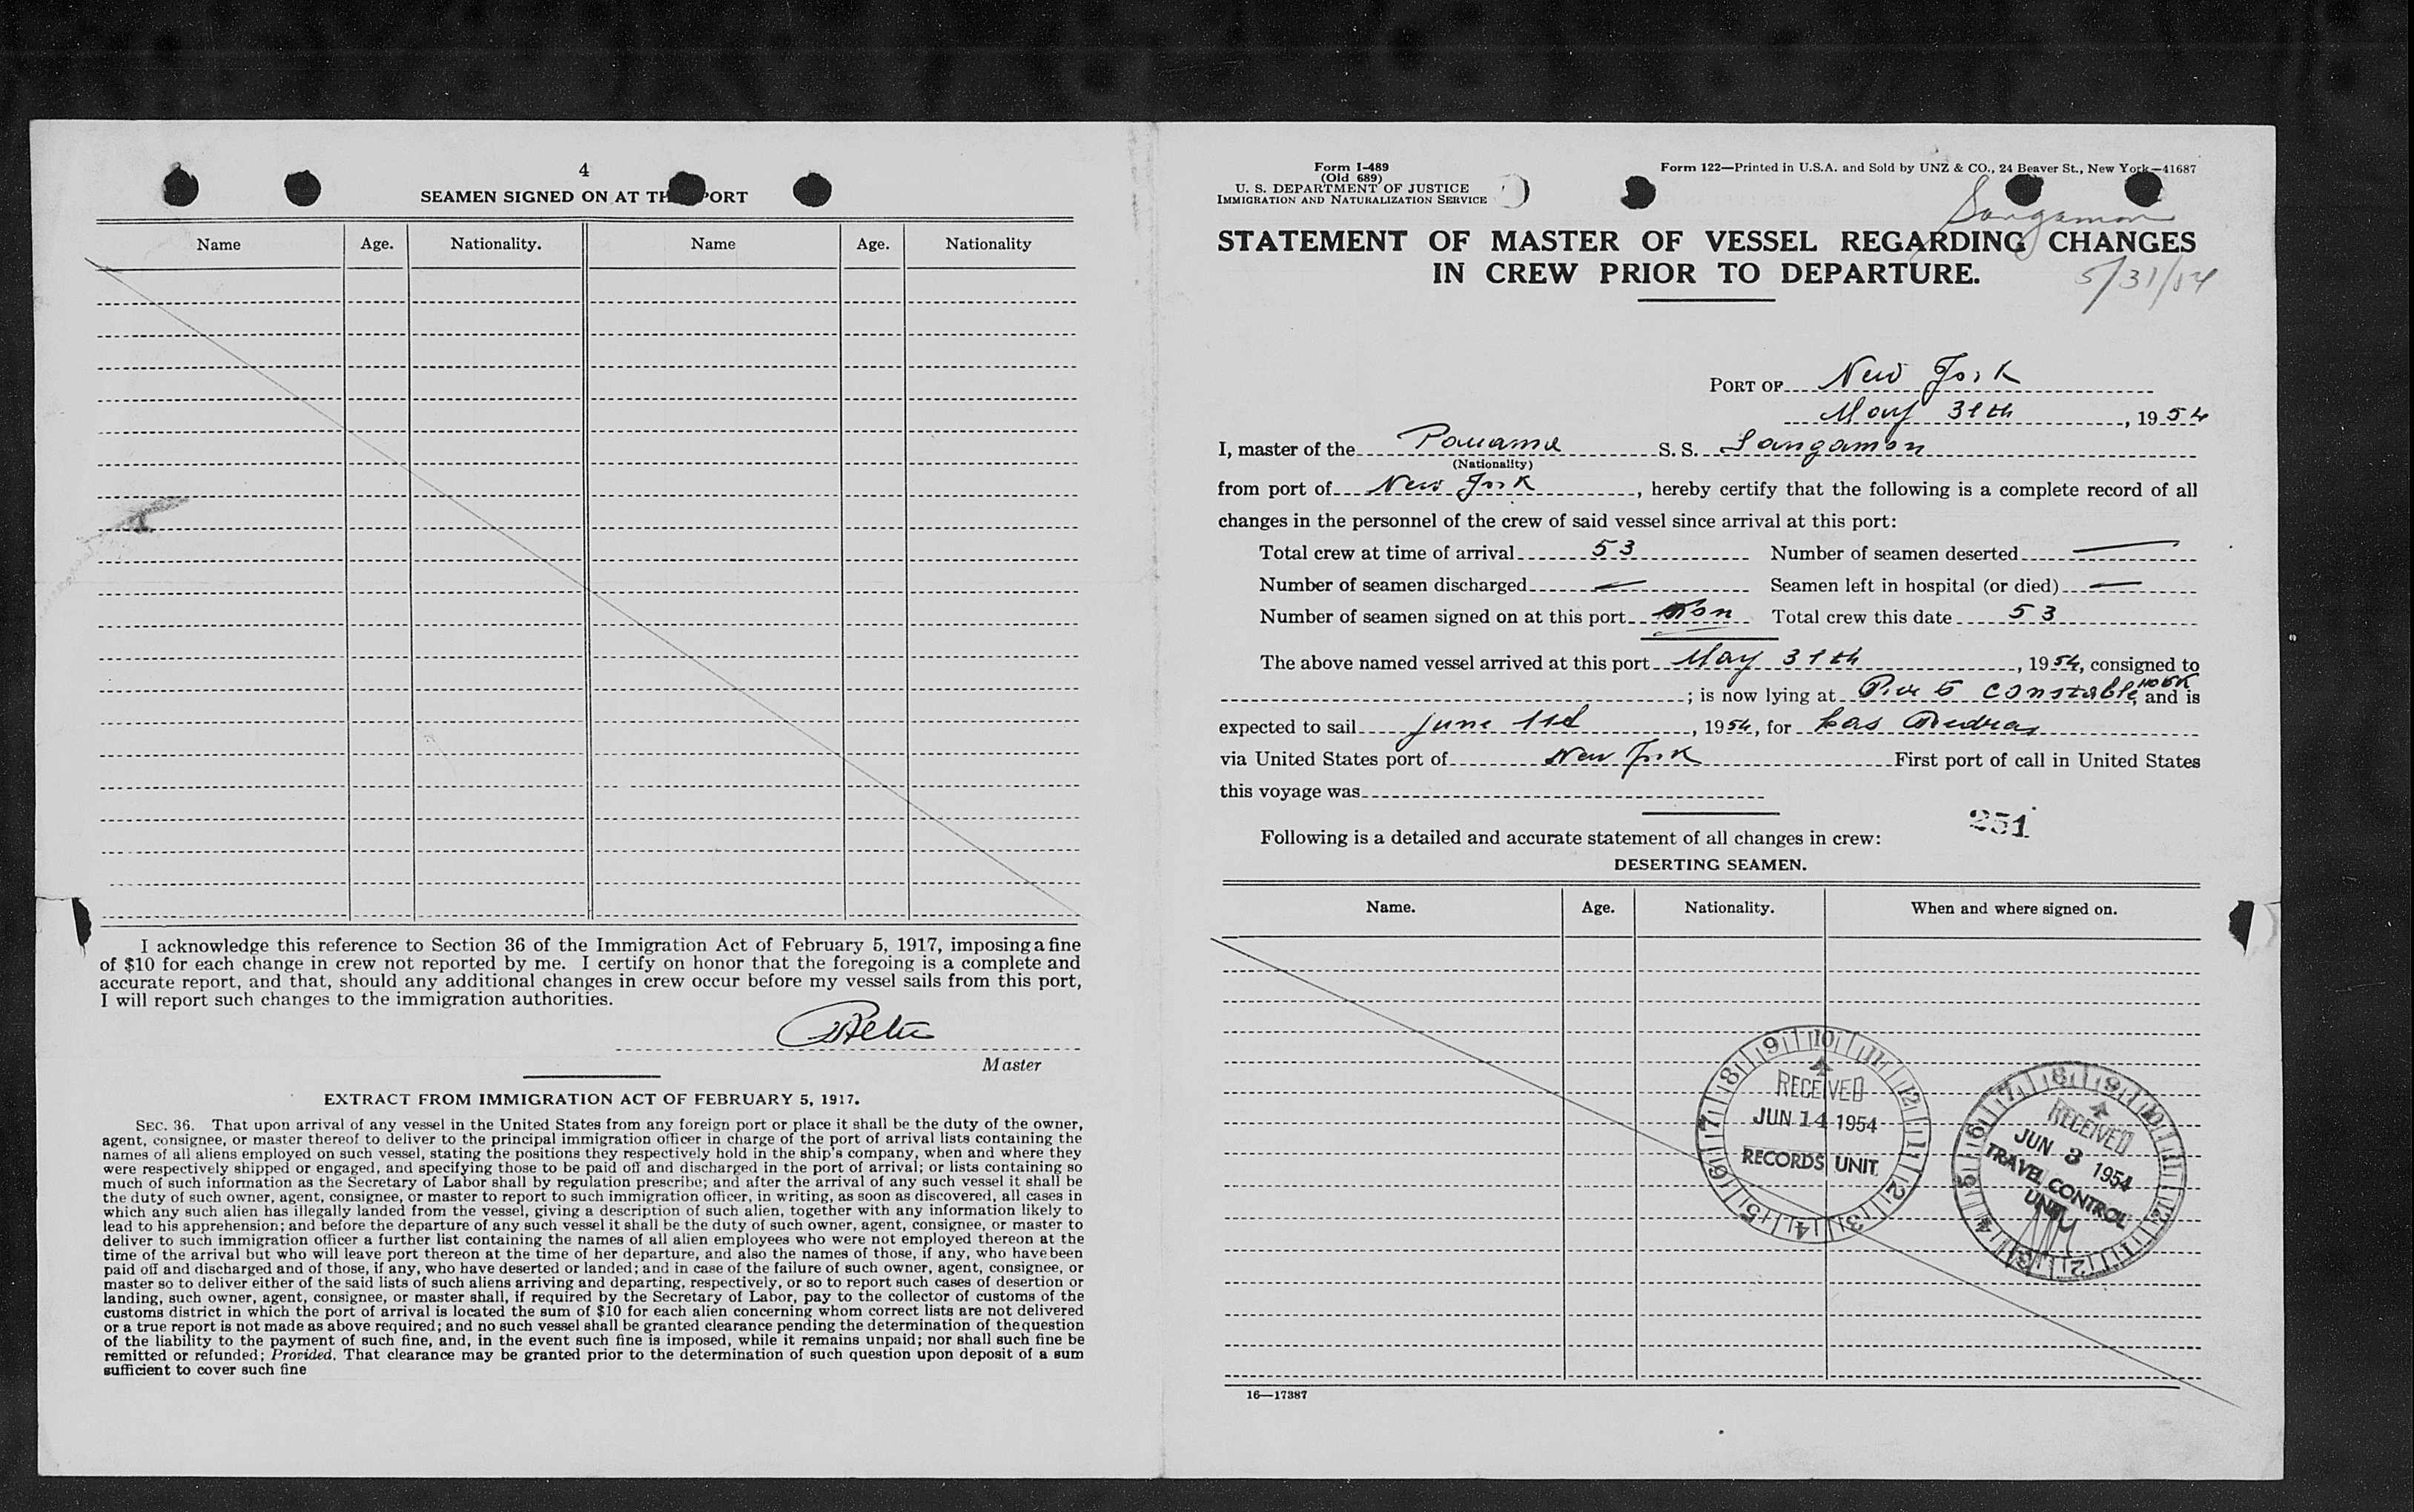 4
SEAMEN SIGNED ON AT TH PORT
Name Age. Nationality. Name Age. Nationality
I acknowledge this reference to Section 36 of the Immigration Act of February 5, 1917, imposing a fine
of $10 for each change in crew not reported by me. I certify on honor that the foregoing is a complete and
accurate report, and that, should any additional changes in crew occur before my vessel sails from this port,
I will report such changes to the immigration authorities.
Master
EXTRACT FROM IMMIGRATION ACT OF FEBRUARY 5, 1917.
SEC. 36. That upon arrival of any vessel in the United States from any foreign port or place it shall be the duty of the owner,
agent, consignee, or master thereof to deliver to the principal immigration officer in charge of the port of arrival lists containing the
names of all aliens employed on such vessel, stating the positions they respectively hold in the ship's company, when and where they
were respectively shipped or engaged, and specifying those to be paid off and discharged in the port of arrival; or lists containing so
much of such information as the Secretary of Labor shall by regulation prescribe; and after the arrival of any such vessel it shall be
the duty of such owner, agent, consignee, or master to report to such immigration officer, in writing, as soon as discovered, all cases in
which any such alien has illegally landed from the vessel, giving a description of such alien, together with any information likely to
lead to his apprehension; and before the departure of any such vessel it shall be the duty of such owner, agent, consignee, or master to
deliver to such immigration officer a further list containing the names of all alien employees who were not employed thereon at the
time of the arrival but who will leave port thereon at the time of her departure, and also the names of those, if any, who have been
paid off and discharged and of those, if any, who have deserted or landed; and in case of the failure of such owner, agent, consignee, or
master so to deliver either of the said lists of such aliens arriving and departing, respectively, or so to report such cases of desertion or
landing, such owner, agent, consignee, or master shall, if required by the Secretary of Labor, pay to the collector of customs of the
customs district in which the port of arrival is located the sum of $10 for each alien concerning whom correct lists are not delivered
or a true report is not made as above required; and no such vessel shall be granted clearance pending the determination of the question
of the liability to the payment of such fine, and, in the event such fine is imposed, while it remains unpaid; nor shall such fine be
remitted or refunded; Provided, That clearance may be granted prior to the determination of such question upon deposit of a sum
sufficient to cover such fine
Form I-489
(Old 689)
U. S. DEPARTMENT OF JUSTICE
IMMIGRATION AND NATURALIZATION SERVICE
Form 122—Printed in U.S.A. and Sold by UNZ & CO., 24 Beaver St., New York—41687
Sangamon
STATEMENT OF MASTER OF VESSEL REGARDING CHANGES
IN CREW PRIOR TO DEPARTURE.
5/31/54
PORT OF New York
May 31th, 1954
I, master of the Panama S. S. Sangamon
(Nationality)
from port of New York, hereby certify that the following is a complete record of all
changes in the personnel of the crew of said vessel since arrival at this port:
Total crew at time of arrival 53 Number of seamen deserted —
Number of seamen discharged — Seamen left in hospital (or died) —
Number of seamen signed on at this port Non Total crew this date 53
The above named vessel arrived at this port May 31th, 1954, consigned to
; is now lying at Pier 5 Constable Hook, and is
expected to sail June 1st, 1954, for Las Piedras
via United States port of New York First port of call in United States
this voyage was
251
Following is a detailed and accurate statement of all changes in crew:
DESERTING SEAMEN.
Name. Age. Nationality. When and where signed on.
9 10 11 12 1 2 3 4 5 6 7 8
RECEIVED
JUN 14 1954
RECORDS UNIT
7 8 9 10 11 12 1 2 3 4 5 6
RECEIVED
JUN 3 1954
TRAVEL CONTROL
UNIT
16—17387